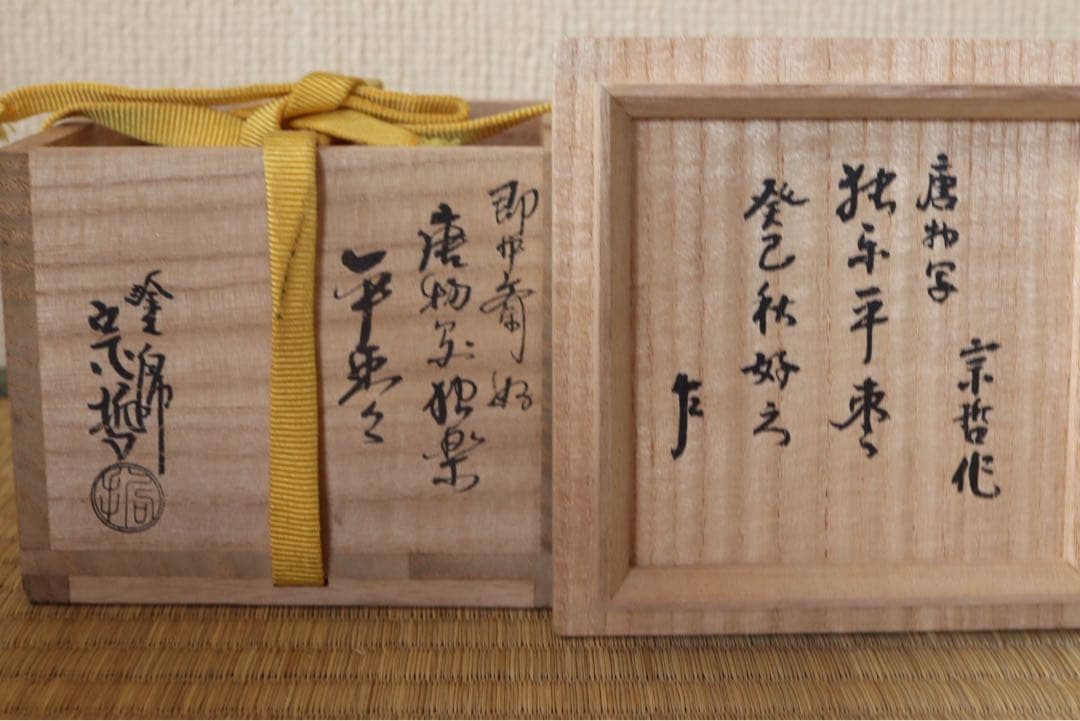 即中斎好
唐物写独楽
平棗
塗師
宗哲
哲
唐物写
宗哲作
独楽平棗
癸巳秋好之
左